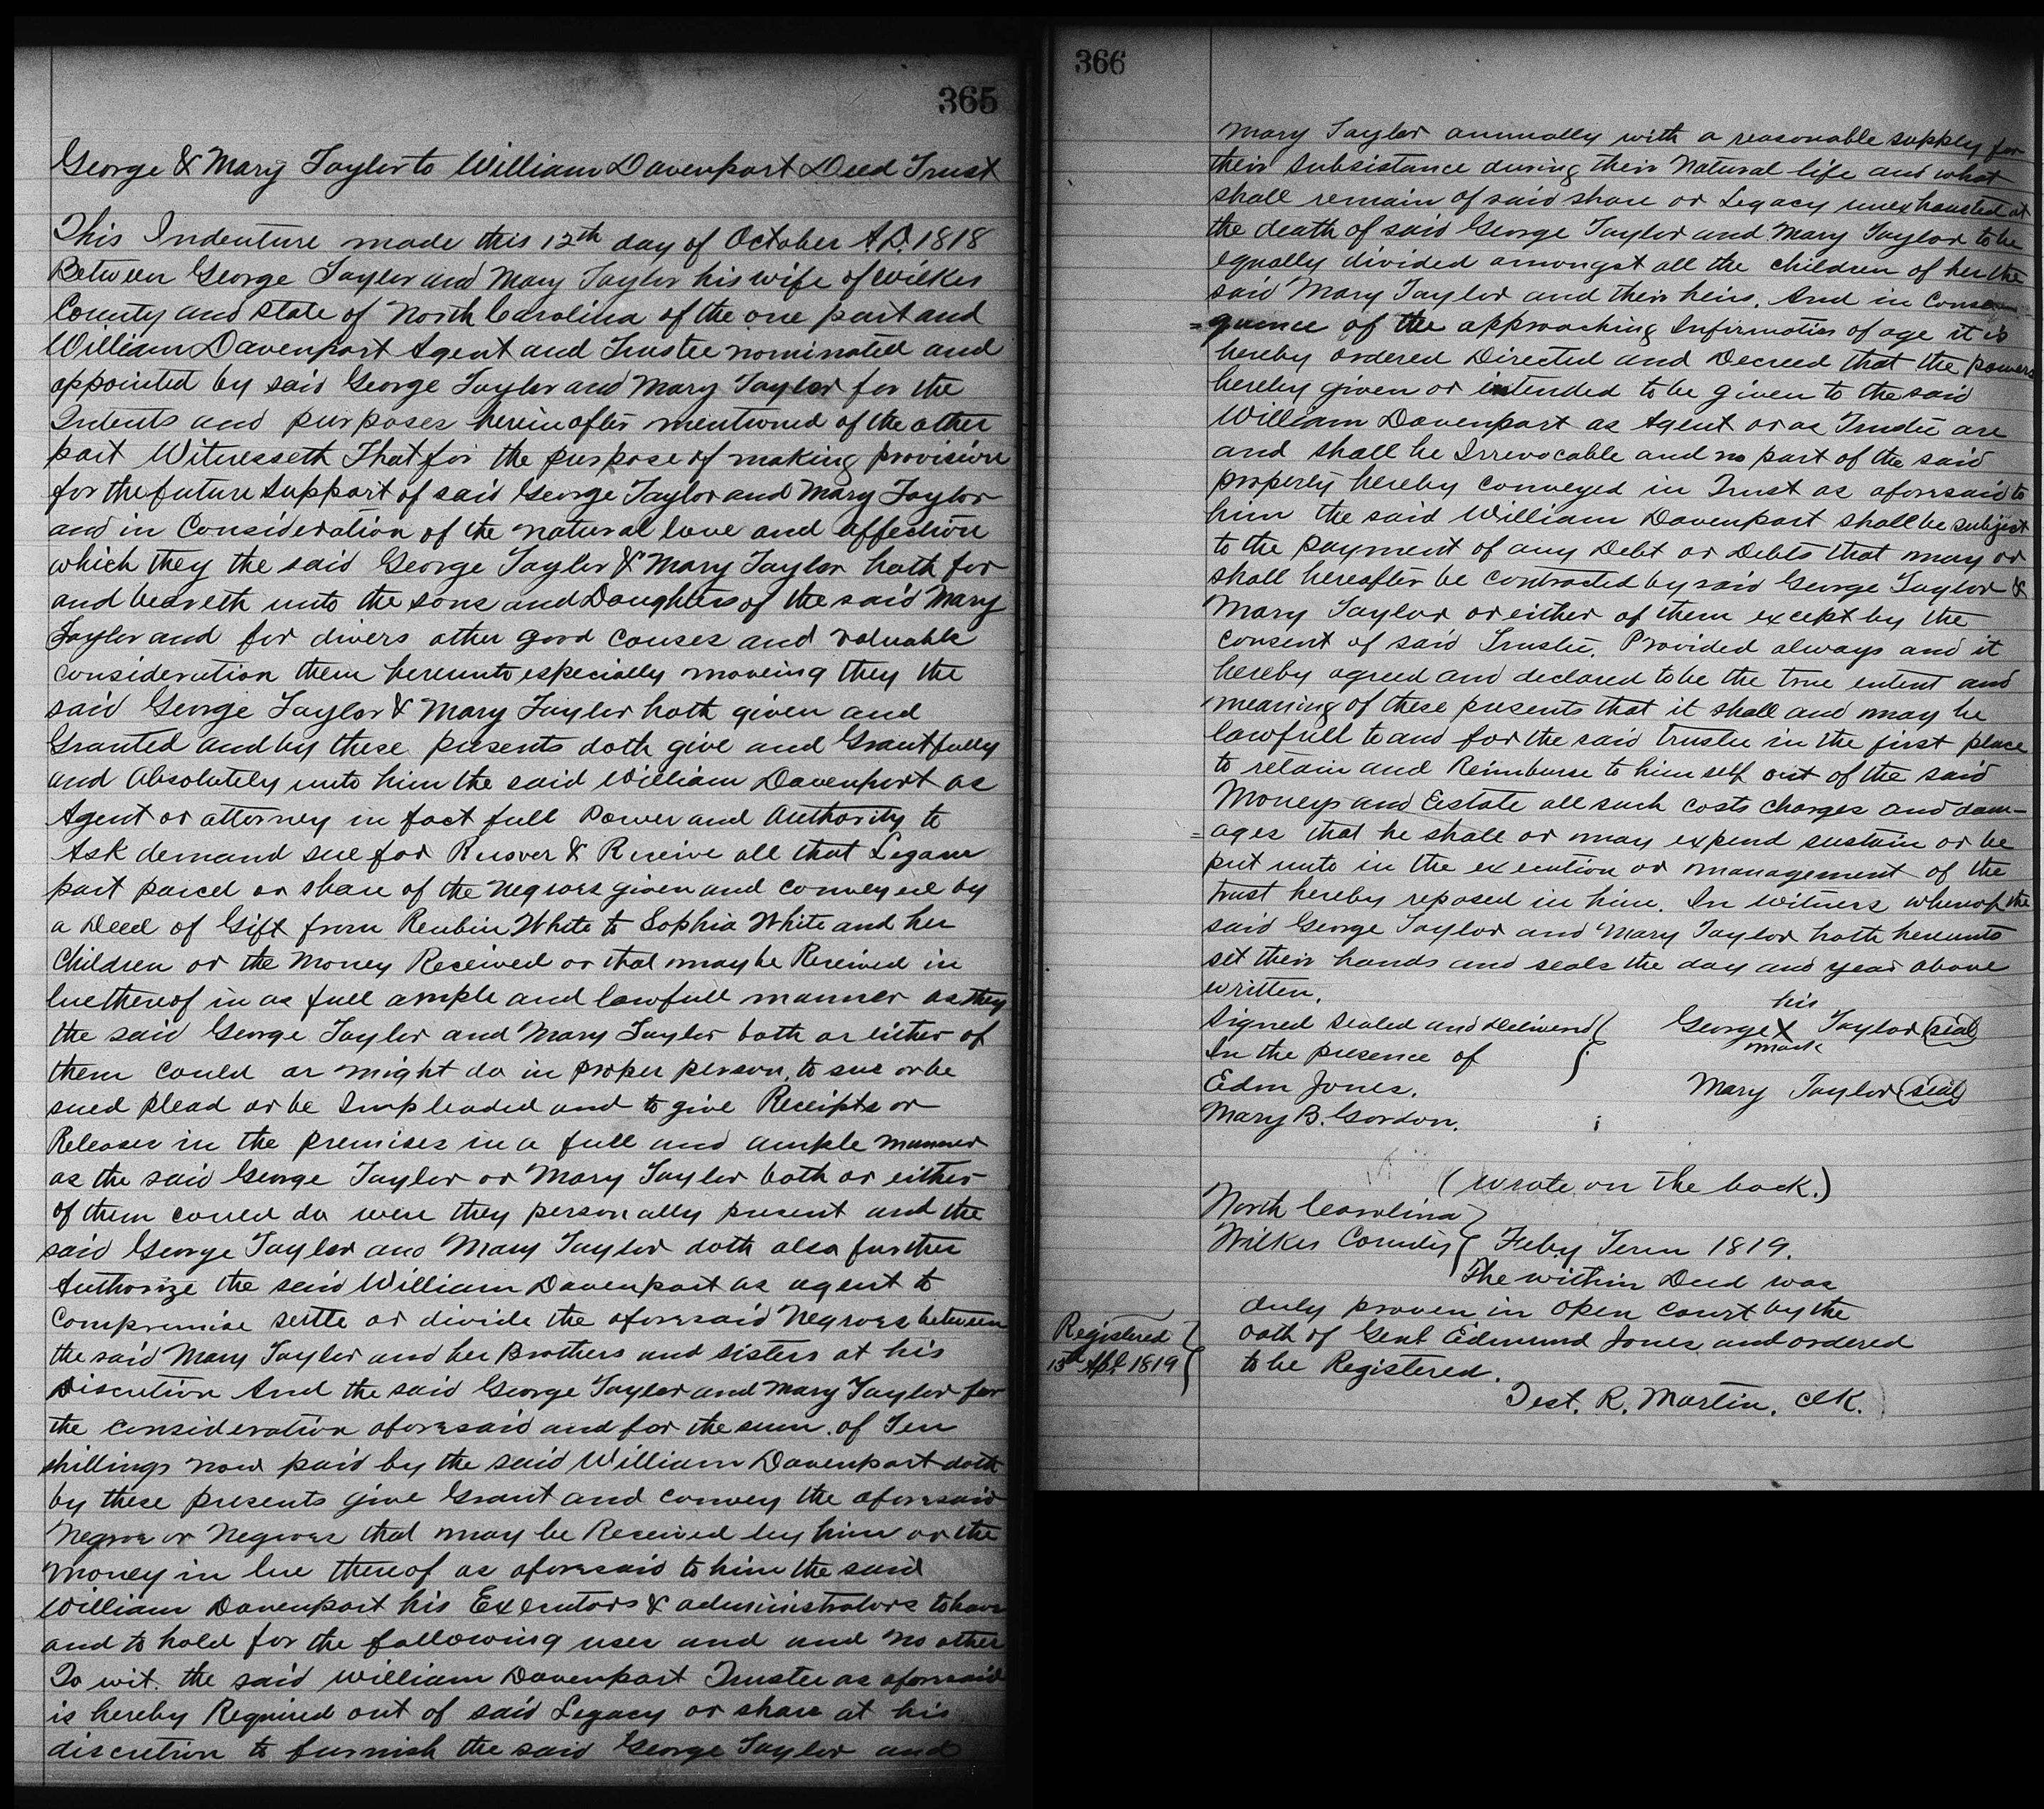 365
George & Mary Taylor to William Davenport Deed Trust
This Indenture made this 12th day of October A.D. 1818
Between George Taylor and Mary Taylor his wife of Wilkes
County and State of North Carolina of the one part and
William Davenport Agent and Trustee nominated and
appointed by said George Taylor and Mary Taylor for the
Intents and purposes herein after mentioned of the other
part Witnesseth That for the purpose of making provision
for the future support of said George Taylor and Mary Taylor
and in Consideration of the natural love and affection
which they the said George Taylor & Mary Taylor hath for
and beareth unto the sons and Daughters of the said Mary
Taylor and for divers other good causes and valuable
consideration them hereunto especially moveing they the
said George Taylor & Mary Taylor hath given and
Granted and by these presents doth give and Grant fully
and Absolutely unto him the said William Davenport as
Agent or attorney in fact full Power and Authority to
Ask demand sue for Recover & Receive all that Legace
part parcel or share of the negroes given and conveyed by
a Deed of Gift from Reubin White to Sophia White and her
Children or the Money Received or that may be Received in
lue thereof in as full ample and lawfull manner as they
the said George Taylor and Mary Taylor both or either of
them could or might do in proper person, to sue or be
sued plead or be Impleaded and to give Receipts or
Releases in the premises in a full and ample manner
as the said George Taylor or Mary Taylor both or either
of them could do were they personally present and the
said George Taylor and Mary Taylor doth also further
Authorize the said William Davenport as agent to
Compromise settle or divide the aforesaid Negroes between
the said Mary Taylor and her Brothers and sisters at his
Discretion And the said George Taylor and Mary Taylor for
the consideration aforesaid and for the sum of Ten
shillings now paid by the said William Davenport doth
by these presents give Grant and convey the aforesaid
Negroe or Negroes that may be Received by him or the
money in lue thereof as aforesaid to him the said
William Davenport his Executors & administrators to have
and to hold for the following uses and and no other
To wit. the said William Davenport Trustee as aforesaid
is hereby Required out of said Legacy or share at his
discretion to furnish the said George Taylor and
366
Mary Taylor annually with a reasonable supply for
their subsistance during their Natural life and what
shall remain of said share or Legacy unexhausted at
the death of said George Taylor and Mary Taylor to be
equally divided amongst all the children of her the
said Mary Taylor and their heirs. And in Conse-
=quence of the approaching Infirmaties of age it is
hereby ordered Directed and Decreed that the powers
hereby given or intended to be given to the said
William Davenport as Agent or as Trustee are
and shall be Irrevocable and no part of the said
property hereby conveyed in Trust as aforesaid to
him the said William Davenport shall be subject
to the payment of any Debt or Debts that may or
shall hereafter be contracted by said George Taylor &
Mary Taylor or either of them except by the
consent of said Trustee. Provided always and it
hereby agreed and declared to be the true entent and
meaning of these presents that it shall and may be
lawfull to and for the said trustee in the first place
to retain and Reimburse to himself out of the said
Moneys and Estate all such costs charges and dam-
=ages that he shall or may expend sustain or be
put unto in the execution or management of the
trust hereby reposed in him. In witness whereof the
said George Taylor and Mary Taylor hath hereunto
set their hands and seals the day and year above
written.
Signed Sealed and Delivered
In the presence of
Edm Jones.
Mary B. Gordon.
his
George X Taylor (seal)
mark
Mary Taylor (seal)
(wrote on the back.)
North Carolina
Wilkes County Feby Term 1819.
The within Deed was
duly proven in open court by the
oath of Genl Edmund Jones and ordered
to be Registered.
Test. R. Martin. Clk.
Registered
13th Apl 1819